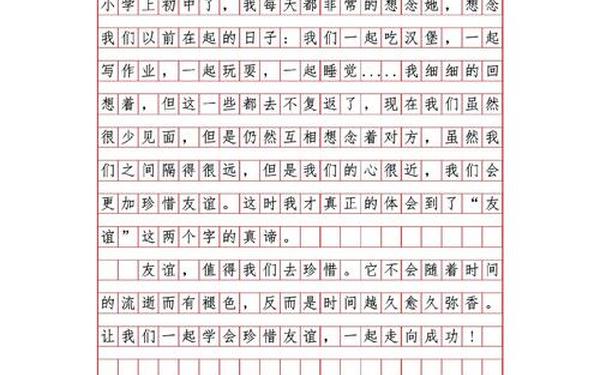 小学上初中了，我每天都非常的想念她，想念
我们以前在起的日子：我们一起吃汉堡，一起
写作业，一起玩耍，一起睡觉.....我细细的回
想着，但这一些都去不复返了，现在我们虽然
很少见面，但是仍然互相想念着对方，虽然我
们之间隔得很远，但是我们的心很近，我们会
更加珍惜友谊。这时我才真正的体会到了“友
谊”这两个字的真谛。
友谊，值得我们去珍惜。它不会随着时间
的流逝而有褪色，反而是时间越久愈久弥香。
让我们一起学会珍惜友谊，一起走向成功！